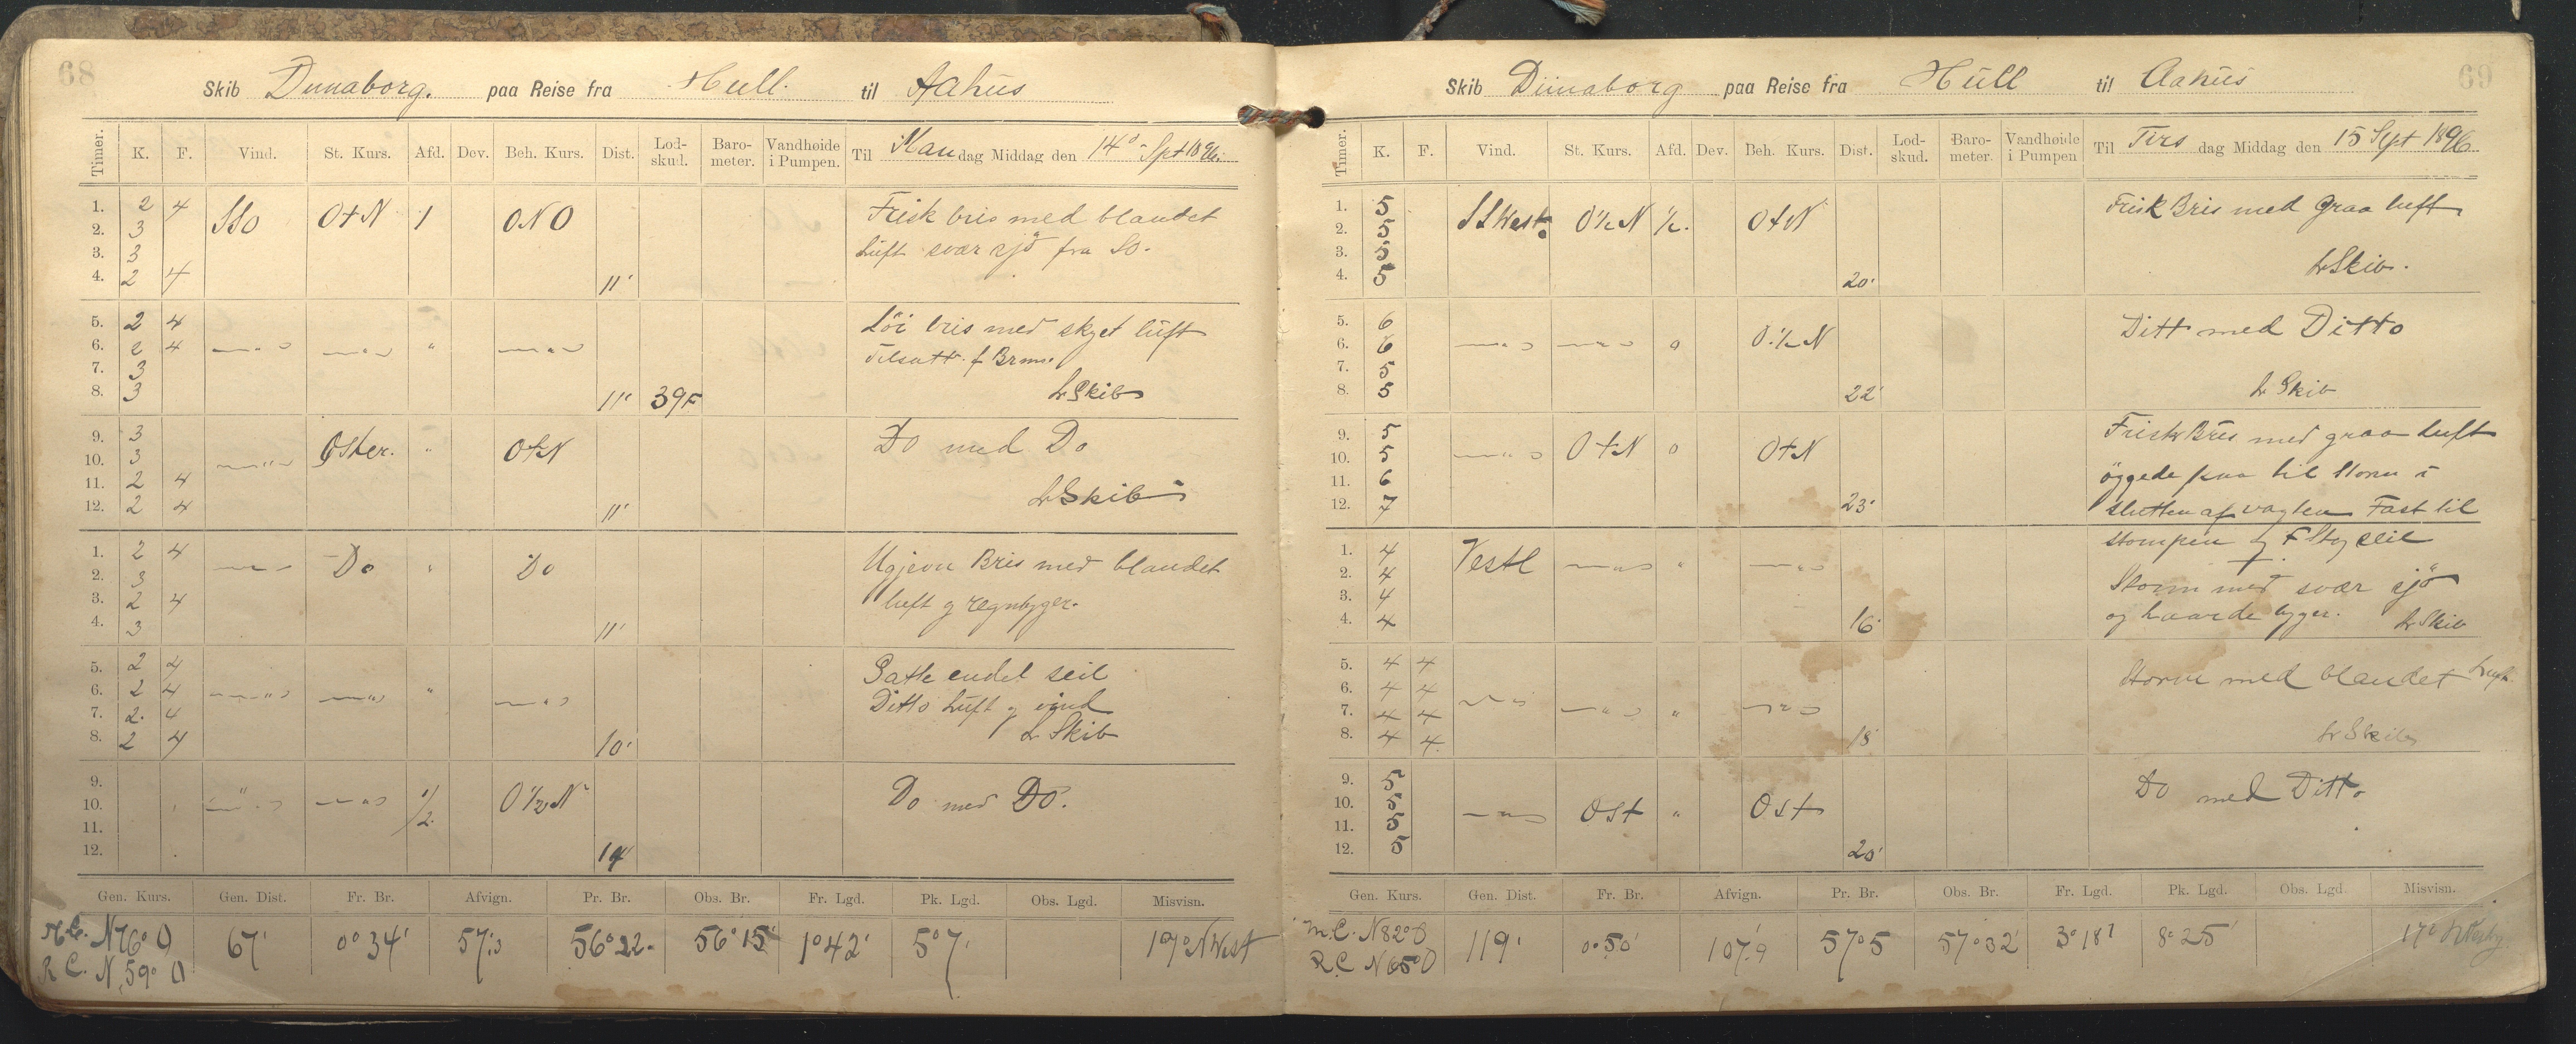 68
Skib Dunaborg. paa Reise fra Hull. til Aahus
Timer. K. F. Vind. St. Kurs. Afd. Dev. Beh. Kurs. Dist. Lod-skud. Baro-meter. Vandhøide i Pumpen. Til Mandag Middag den 14de Spt 1896.
1. 2 4 SSO O t N 1 ONO Frisk bris med blandet
2. 3 luft svær sjö fra SO.
3. 3
4. 2 4 11'
5. 2 4 Löi bris med skyet luft
6. 2 4 — " — — " — " — " — Tilsatt f Brm
7. 3
8. 3 11' 39F Lr Skib
9. 3 Do med Do
10. 3 — " — Oster. " O t N
11. 2 4 Lr Skib
12. 2 4 11'
1. 2 4 Ugjevn Bris med blandet
2. 3 — " — Do " Do
3. 2 4 luft og regnbyger.
4. 3 11'
5. 2 4 Satte endel seil
6. 2 4 — " — — " — " — " — Ditto Luft og vind
7. 2. 4
8. 2 4 10' Lr Skib
9.
10. — " — — " — 1/2 O 1/2 N Do med Do.
11.
12. 14
Gen. Kurs. Gen. Dist. Fr. Br. Afvign. Pr. Br. Obs. Br. Fr. Lgd. Pk. Lgd. Obs. Lgd. Misvisn.
M.C. N 76° O 67' 0° 34' 57'.3 56° 22' 56° 15' 1° 42' 5° 7' 17° N West
R C. N 59° O
69
Skib Dünaborg paa Reise fra Hüll til Aahüs
Timer. K. F. Vind. St. Kurs. Afd. Dev. Beh. Kurs. Dist. Lod-skud. Baro-meter. Vandhøide i Pumpen Til Tirsdag Middag den 15 Sept 1896
1. 5 SSWest. O 1/2 N 1/2. O t N Frisk Bris med graa luft
2. 5
3. 5
4. 5 20' Lr Skib.
5. 6 Ditt med Ditto
6. 6 — " — — " — " O. 1/2 N
7. 5
8. 5 22' Lr Skib
9. 5 Frisk Bris med graa Luft
10. 5 — " — O t N " O t N
11. 6 öggede paa til Storm i
12. 7 23' slutten af vagten Fast til
1. 4 stompen og F Stag seil
2. 4 Vestl — " — " — " — Storm med svær sjö
3. 4
4. 4 16' og haarde byger. Lr Skib
5. 4 4 Storm med blandet Luft
6. 4 4
7. 4 4 — " — — " — " — " —
8. 4 4 18' Lr Skib
9. 5 Do med Ditto
10. 5 — " — Ost " Ost
11. 5
12. 5 20'
Gen. Kurs. Gen. Dist. Fr. Br. Afvign. Pr. Br. Obs. Br. Fr. Lgd. Pk. Lgd. Obs. Lgd. Misvisn.
m.C. N 82° O 119' 0° 50' 107'.9 57° 5 57° 32' 3° 18' 8° 25' 17°
R.C N 65° O